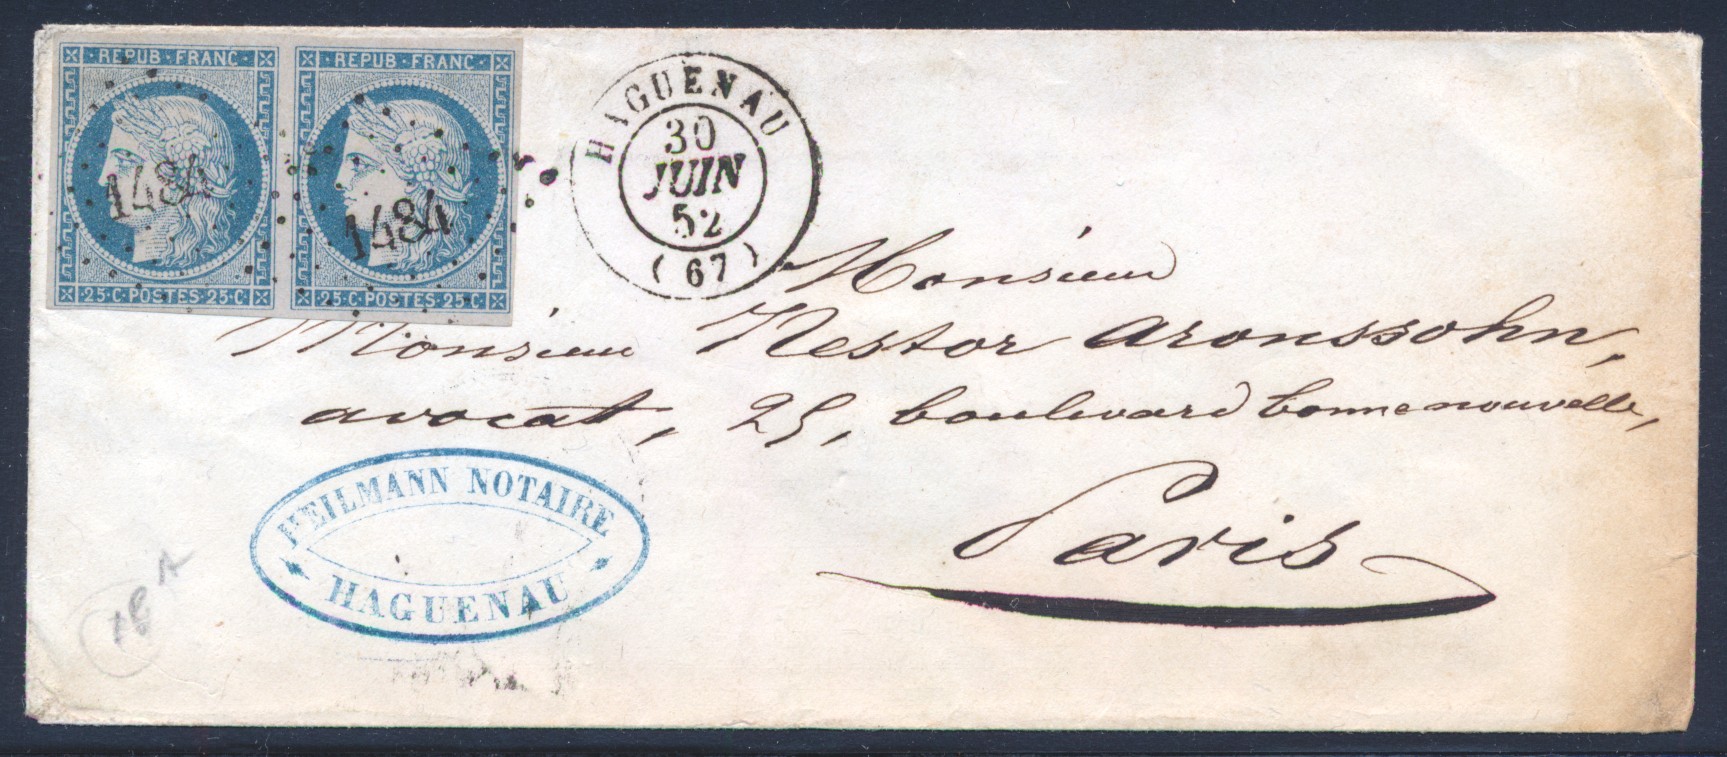 REPUB·FRANC·
REPUB·FRANC·
1484
1484
25·C·POSTES·25·C·
25·C·POSTES·25·C·
HAGUENAU
30
JUIN
52
(67)
Monsieur
Monsieur Nestor Aronssohn,
avocat, 25, boulevard bonne nouvelle,
Paris
HEILMANN NOTAIRE
HAGUENAU